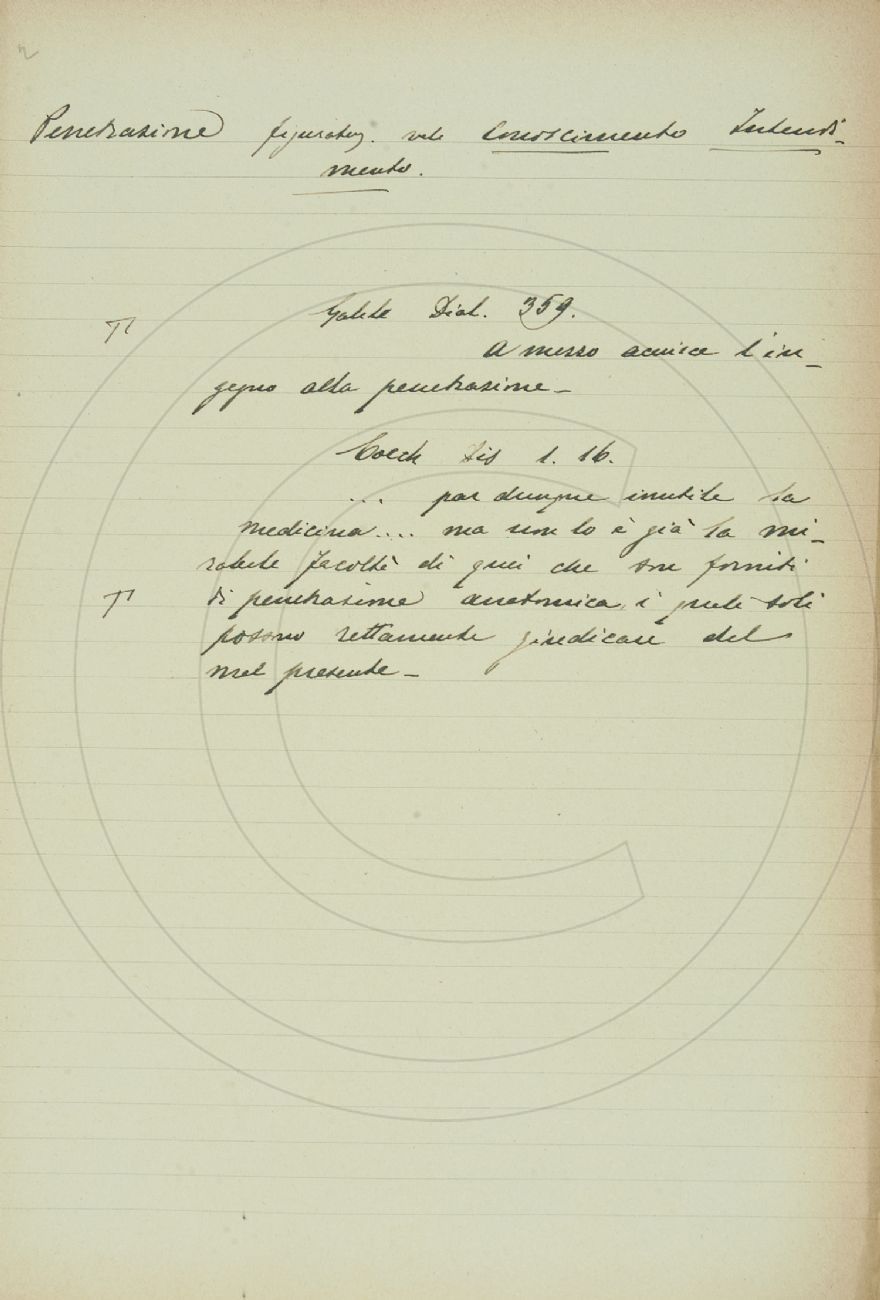 Penetrazione figuratam. vale Conoscimento Intendi-
mento.
Galile Dial. 359.
A messo acuisce l'in-
gegno alla penetrazione –
Cocch Dis 1. 16.
... par dunque inutile la
medicina.... ma non lo è già la mi-
rabile facoltà di quei che son forniti
di penetrazione anatomica, i quali soli
possono rettamente giudicare del
mal presente –